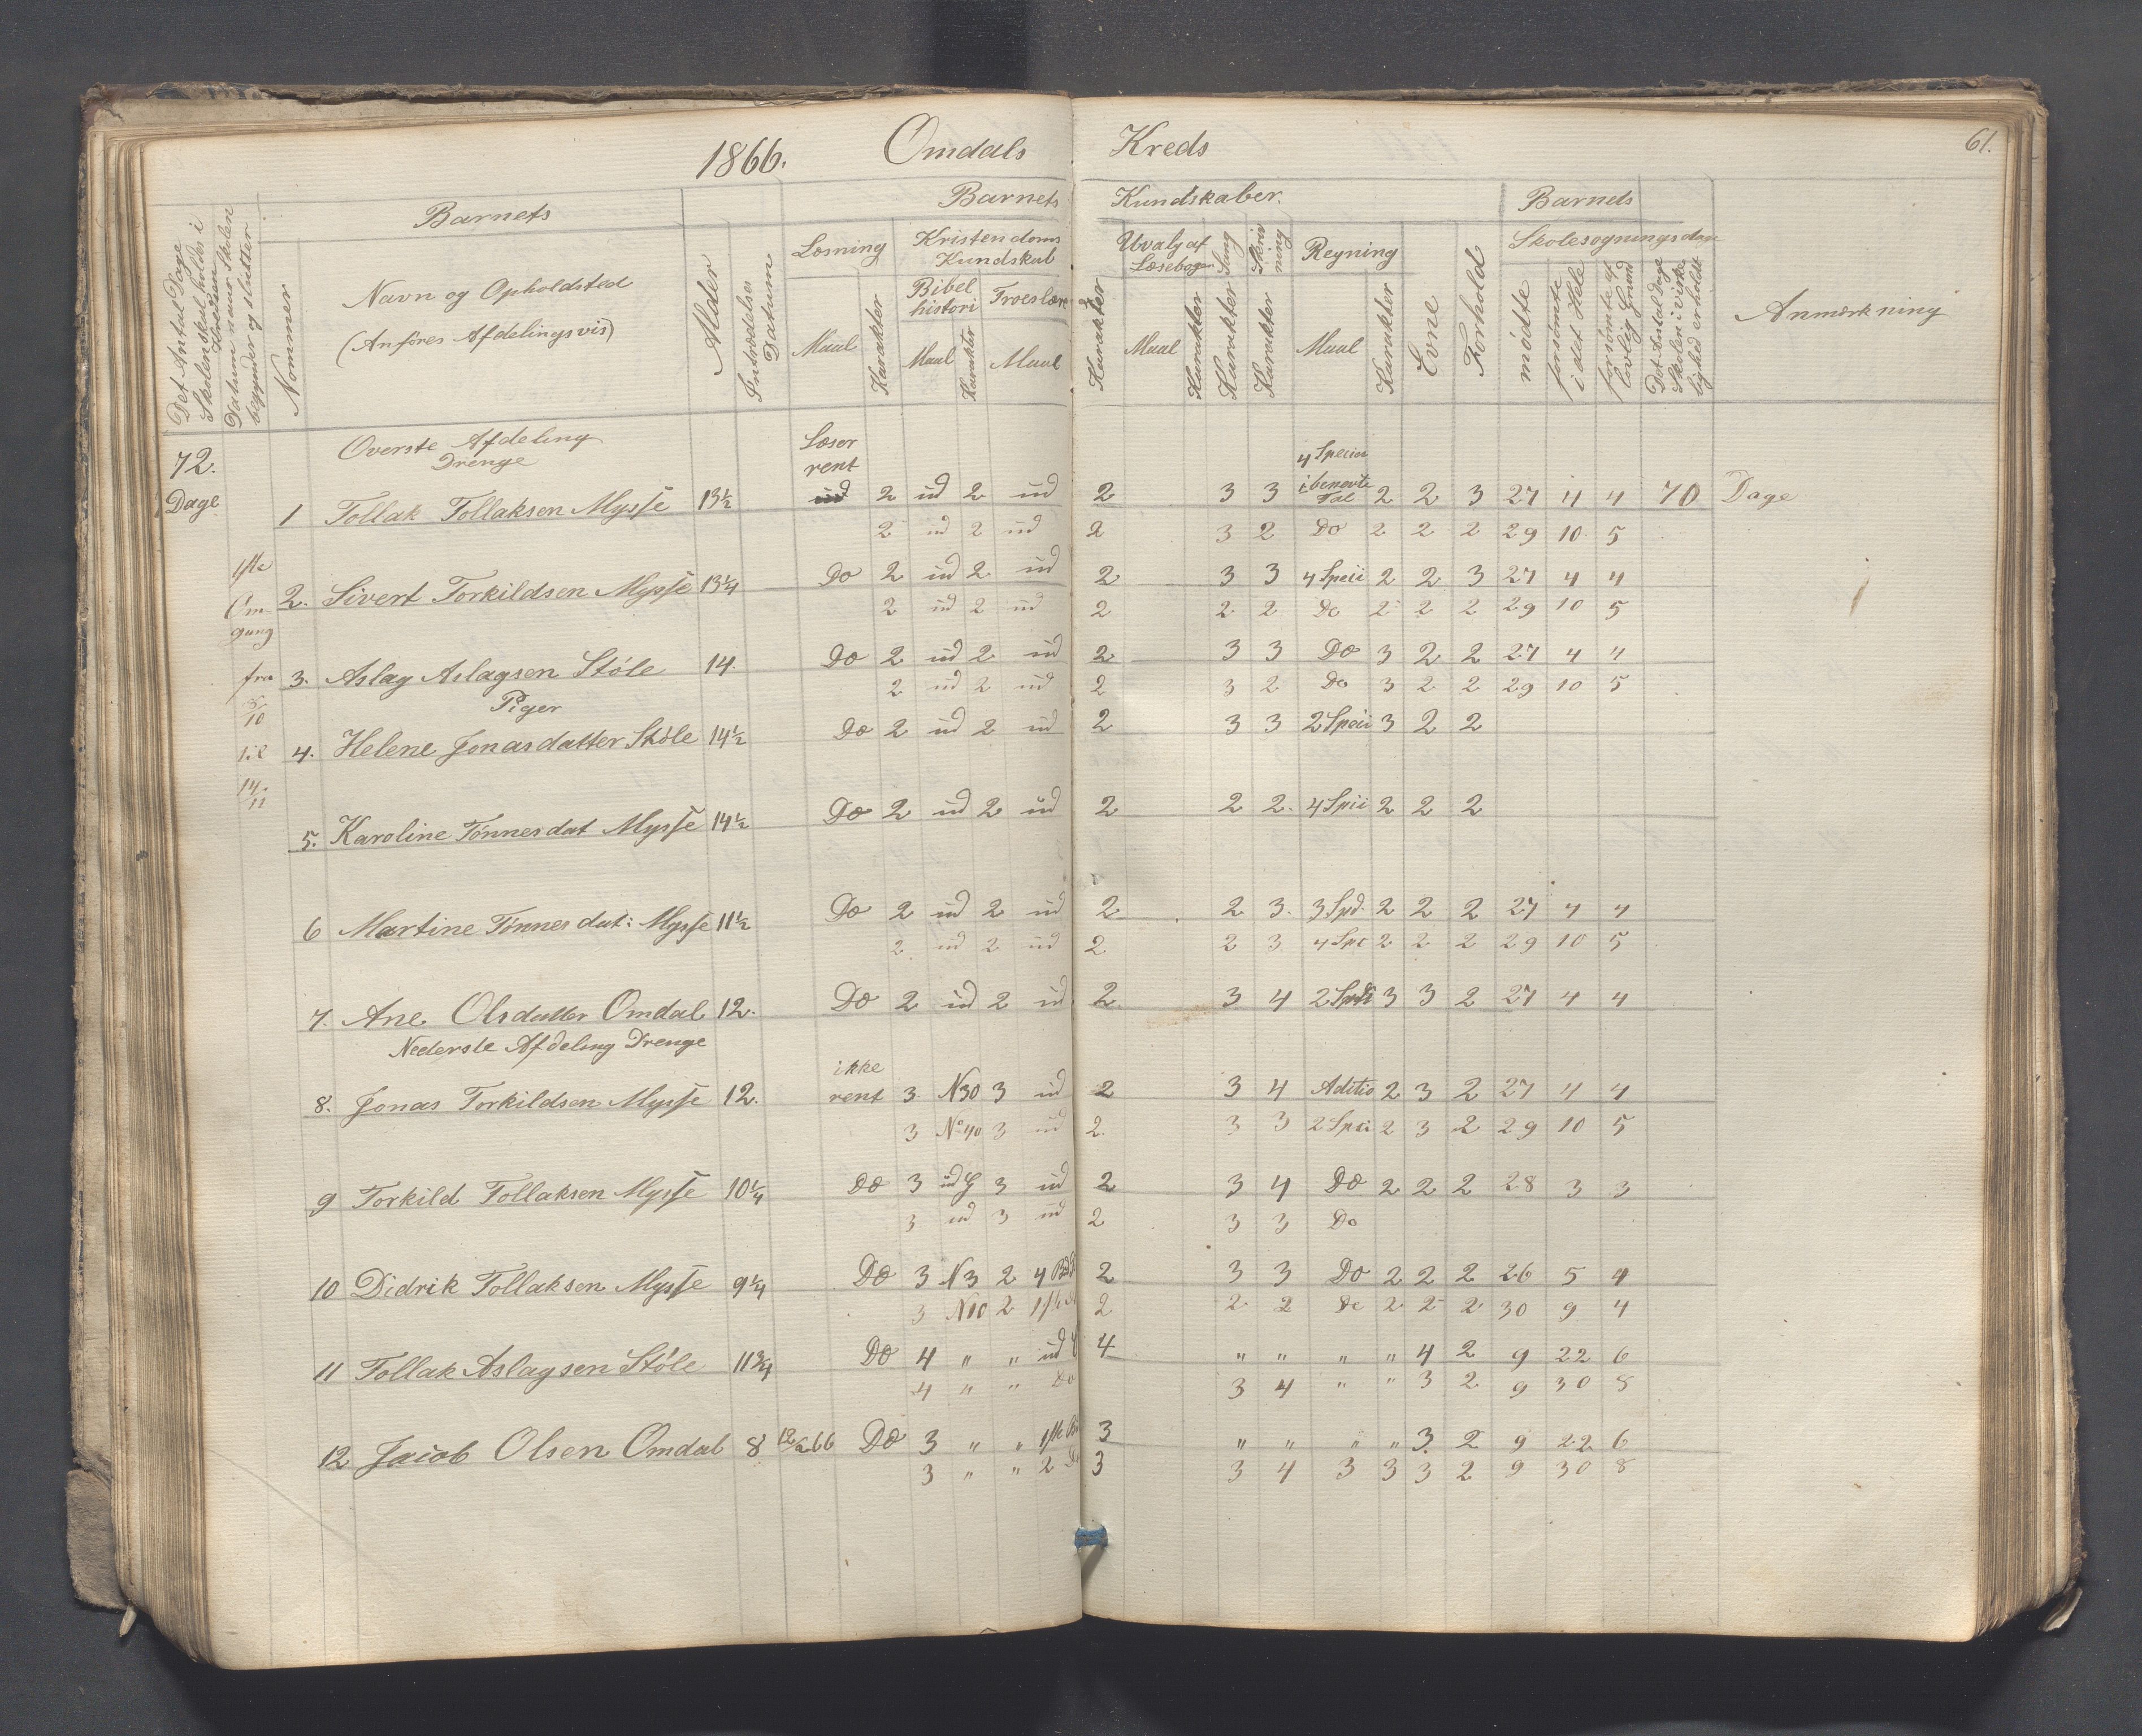 1866. Omdals Kreds 61.
Barnets Barnets Kundskaber. Barnets
Det Antal Dage Skolen skal holdes i Kredsen
Datum naar Skolen begynder og slutter
Nommer
Navn og Opholdsted
(Anføres Afdelingsvis)
Alder
Indtrædelses Datum
Læsning Kristendoms Kundskab Udvalg af Læsebogen Sang Skrivning Regning Evne Forhold Skolesøgningsdage
Bibelhistori Troeslære
Maal Karakter Maal Karakter Maal Karakter Maal Karakter Karakter Karakter Maal Karakter
mødte forsømte i det Hele forsømte af lovlig Grund
Det Antal Dage Skolen i virkelighed er holdt
Anmærkning
72. Dage
1ste Omgang fra 8/10 til 14/11
Øverste Afdeling
Drenge
1 Tollak Tollaksen Mysse 13½ Læser rent 2 ud 2 ud 2 3 3 4 Specier i benævte Tal 2 2 3 27 4 4 70 Dage
2 ud 2 ud 2 3 2 Do 2 2 2 29 10 5
2. Sivert Torkildsen Mysse 13¼ Do 2 ud 2 ud 2 3 3 4 Speii 2 2 3 27 4 4
2 ud 2 ud 2 2 2 Do 2 2 2 29 10 5
3. Aslag Aslagsen Støle 14. Do 2 ud 2 ud 2 3 3 Do 3 2 2 27 4 4
2 ud 2 ud 2 3 2 Do 3 2 2 29 10 5
Piger
4. Helene Jonasdatter Støle 14½ Do 2 ud 2 ud 2 3 3 2 Speii 3 2 2
5. Karoline Tønnesdat Mysse 14½ Do 2 ud 2 ud 2 2 2. 4 Spii 2 2 2
6 Martine Tønnesdat: Mysse 11½ Do 2 ud 2 ud 2 2 3. 3 Spd. 2 2 2 27 4 4
2 ud 2 ud 2 2 3 4 Spe 2 2 2 29 10 5
7. Ane Olsdatter Omdal 12. Do 2 ud 2 ud. 2 3 4 2 3 3 2 27 4 4
Nederste Afdeling Drenge
8. Jonas Torkildsen Mysse 12. ikke rent 3 N30 3 ud 2 3 4 Aditio 2 3 2 27 4 4
3 No 40 3 ud 2. 3 3 2 Spei 2 3 2 29 10 5
9 Torkild Tollaksen Mysse 10¼ Do 3 ud 3 ud 2 3 4 Do 2 2 2 28 3 3
3 ud 3 ud 2 3 3 Do
10 Didrik Tollaksen Mysse 9¼ Do 3 N3 2 4 2 3 3 Do 2 2 2 26 5 4
3 N10 2 2 2 2 Do 2 2 2 30 9 4
11 Tollak Aslagsen Støle 11¾ Do 4 " " ud 4 " " " " 4 2 9 22 6
4 " " Do 3 4 " " 3 2 9 30 8
12 Jacob Olsen Omdal 8 12/2 66 Do 3 " " 1ste 3 " " " " 3 2 9 22 6
3 " " 2 3 3 4 3 3 3 2 9 30 8